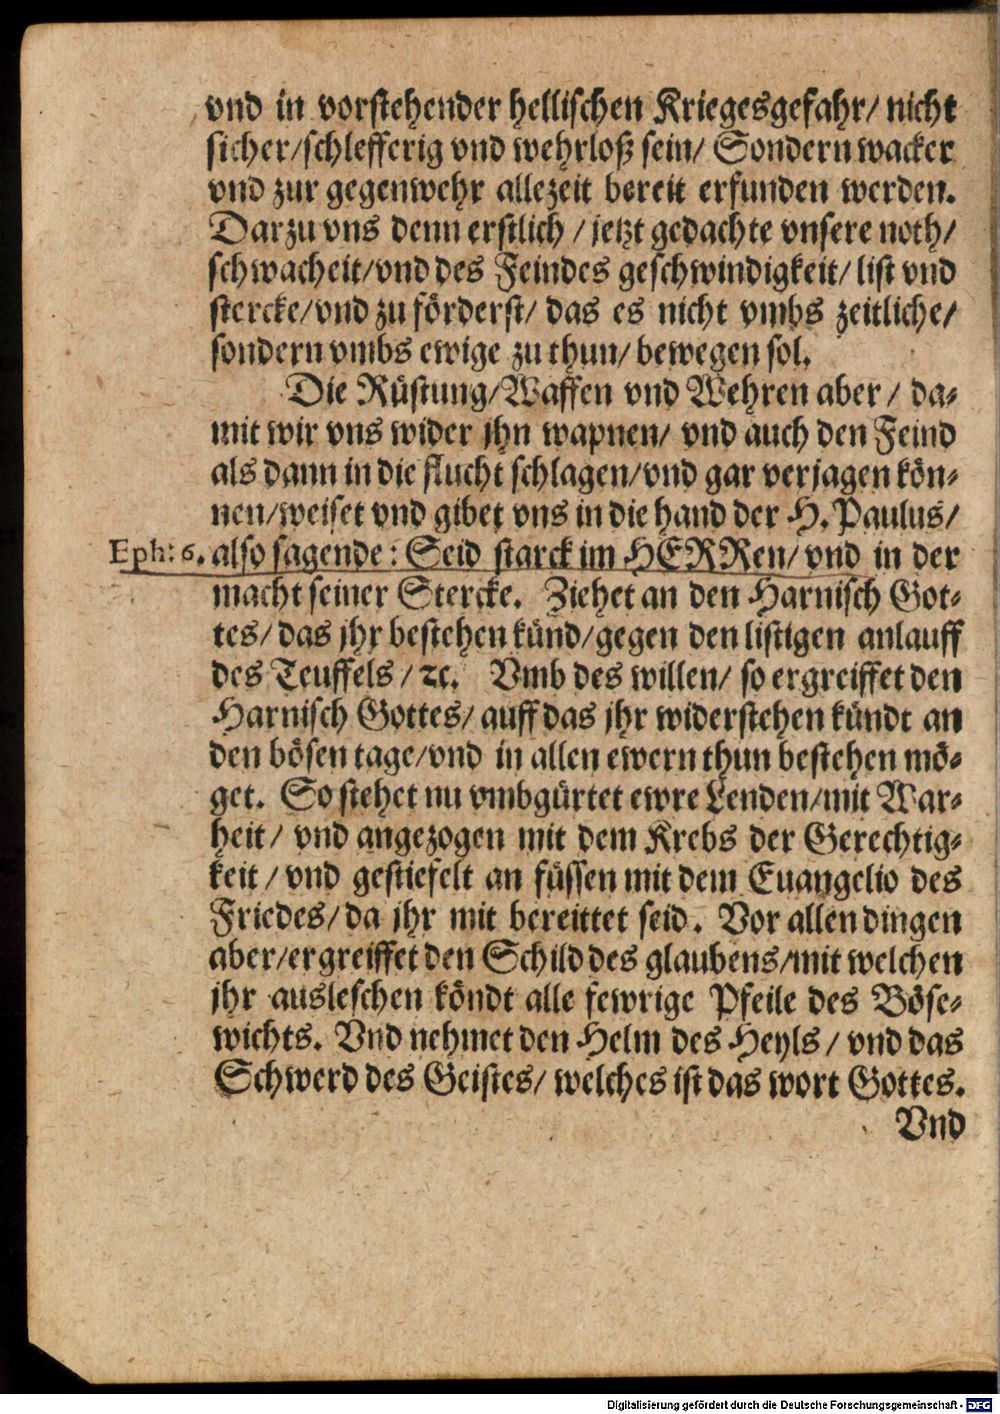 vnd in vorstehender hellischen Kriegesgefahr/ nicht
sicher/schlefferig vnd wehrloß sein/ Sondern wacker
vnd zur gegenwehr allezeit bereit erfunden werden.
Darzu vns denn erstlich / jetzt gedachte vnsere noth/
schwacheit/vnd des Feindes geschwindigkeit/ list vnd
stercke/vnd zu förderst/ das es nicht vmbs zeitliche/
sondern vmbs ewige zu thun/ bewegen sol.
Die Rüstung/Waffen vnd Wehren aber / da-
mit wir vns wider jhn wapnen/ vnd auch den Feind
als dann in die flucht schlagen/vnd gar verjagen kön-
nen/weiset vnd gibet vns in die hand der H. Paulus/
Eph: 6. also sagende: Seid starck im HERRen/ vnd in der
macht seiner Stercke. Ziehet an den Harnisch Got-
tes/ das jhr bestehen künd/gegen den listigen anlauff
des Teuffels / ꝛc. Vmb des willen/ so ergreiffet den
Harnisch Gottes/ auff das jhr widerstehen kündt an
den bösen tage/vnd in allen ewern thun bestehen mö-
get. So stehet nu vmbgürtet ewre Lenden/mit War-
heit/ vnd angezogen mit dem Krebs der Gerechtig-
keit / vnd gestiefelt an füssen mit dem Euangelio des
Friedes/ da jhr mit bereittet seid. Vor allen dingen
aber/ergreiffet den Schild des glaubens/mit welchen
jhr ausleschen köndt alle fewrige Pfeile des Böse-
wichts. Vnd nehmet den Helm des Heyls / vnd das
Schwerd des Geistes/ welches ist das wort Gottes.
Vnd
Digitalisierung gefördert durch die Deutsche Forschungsgemeinschaft - DFG